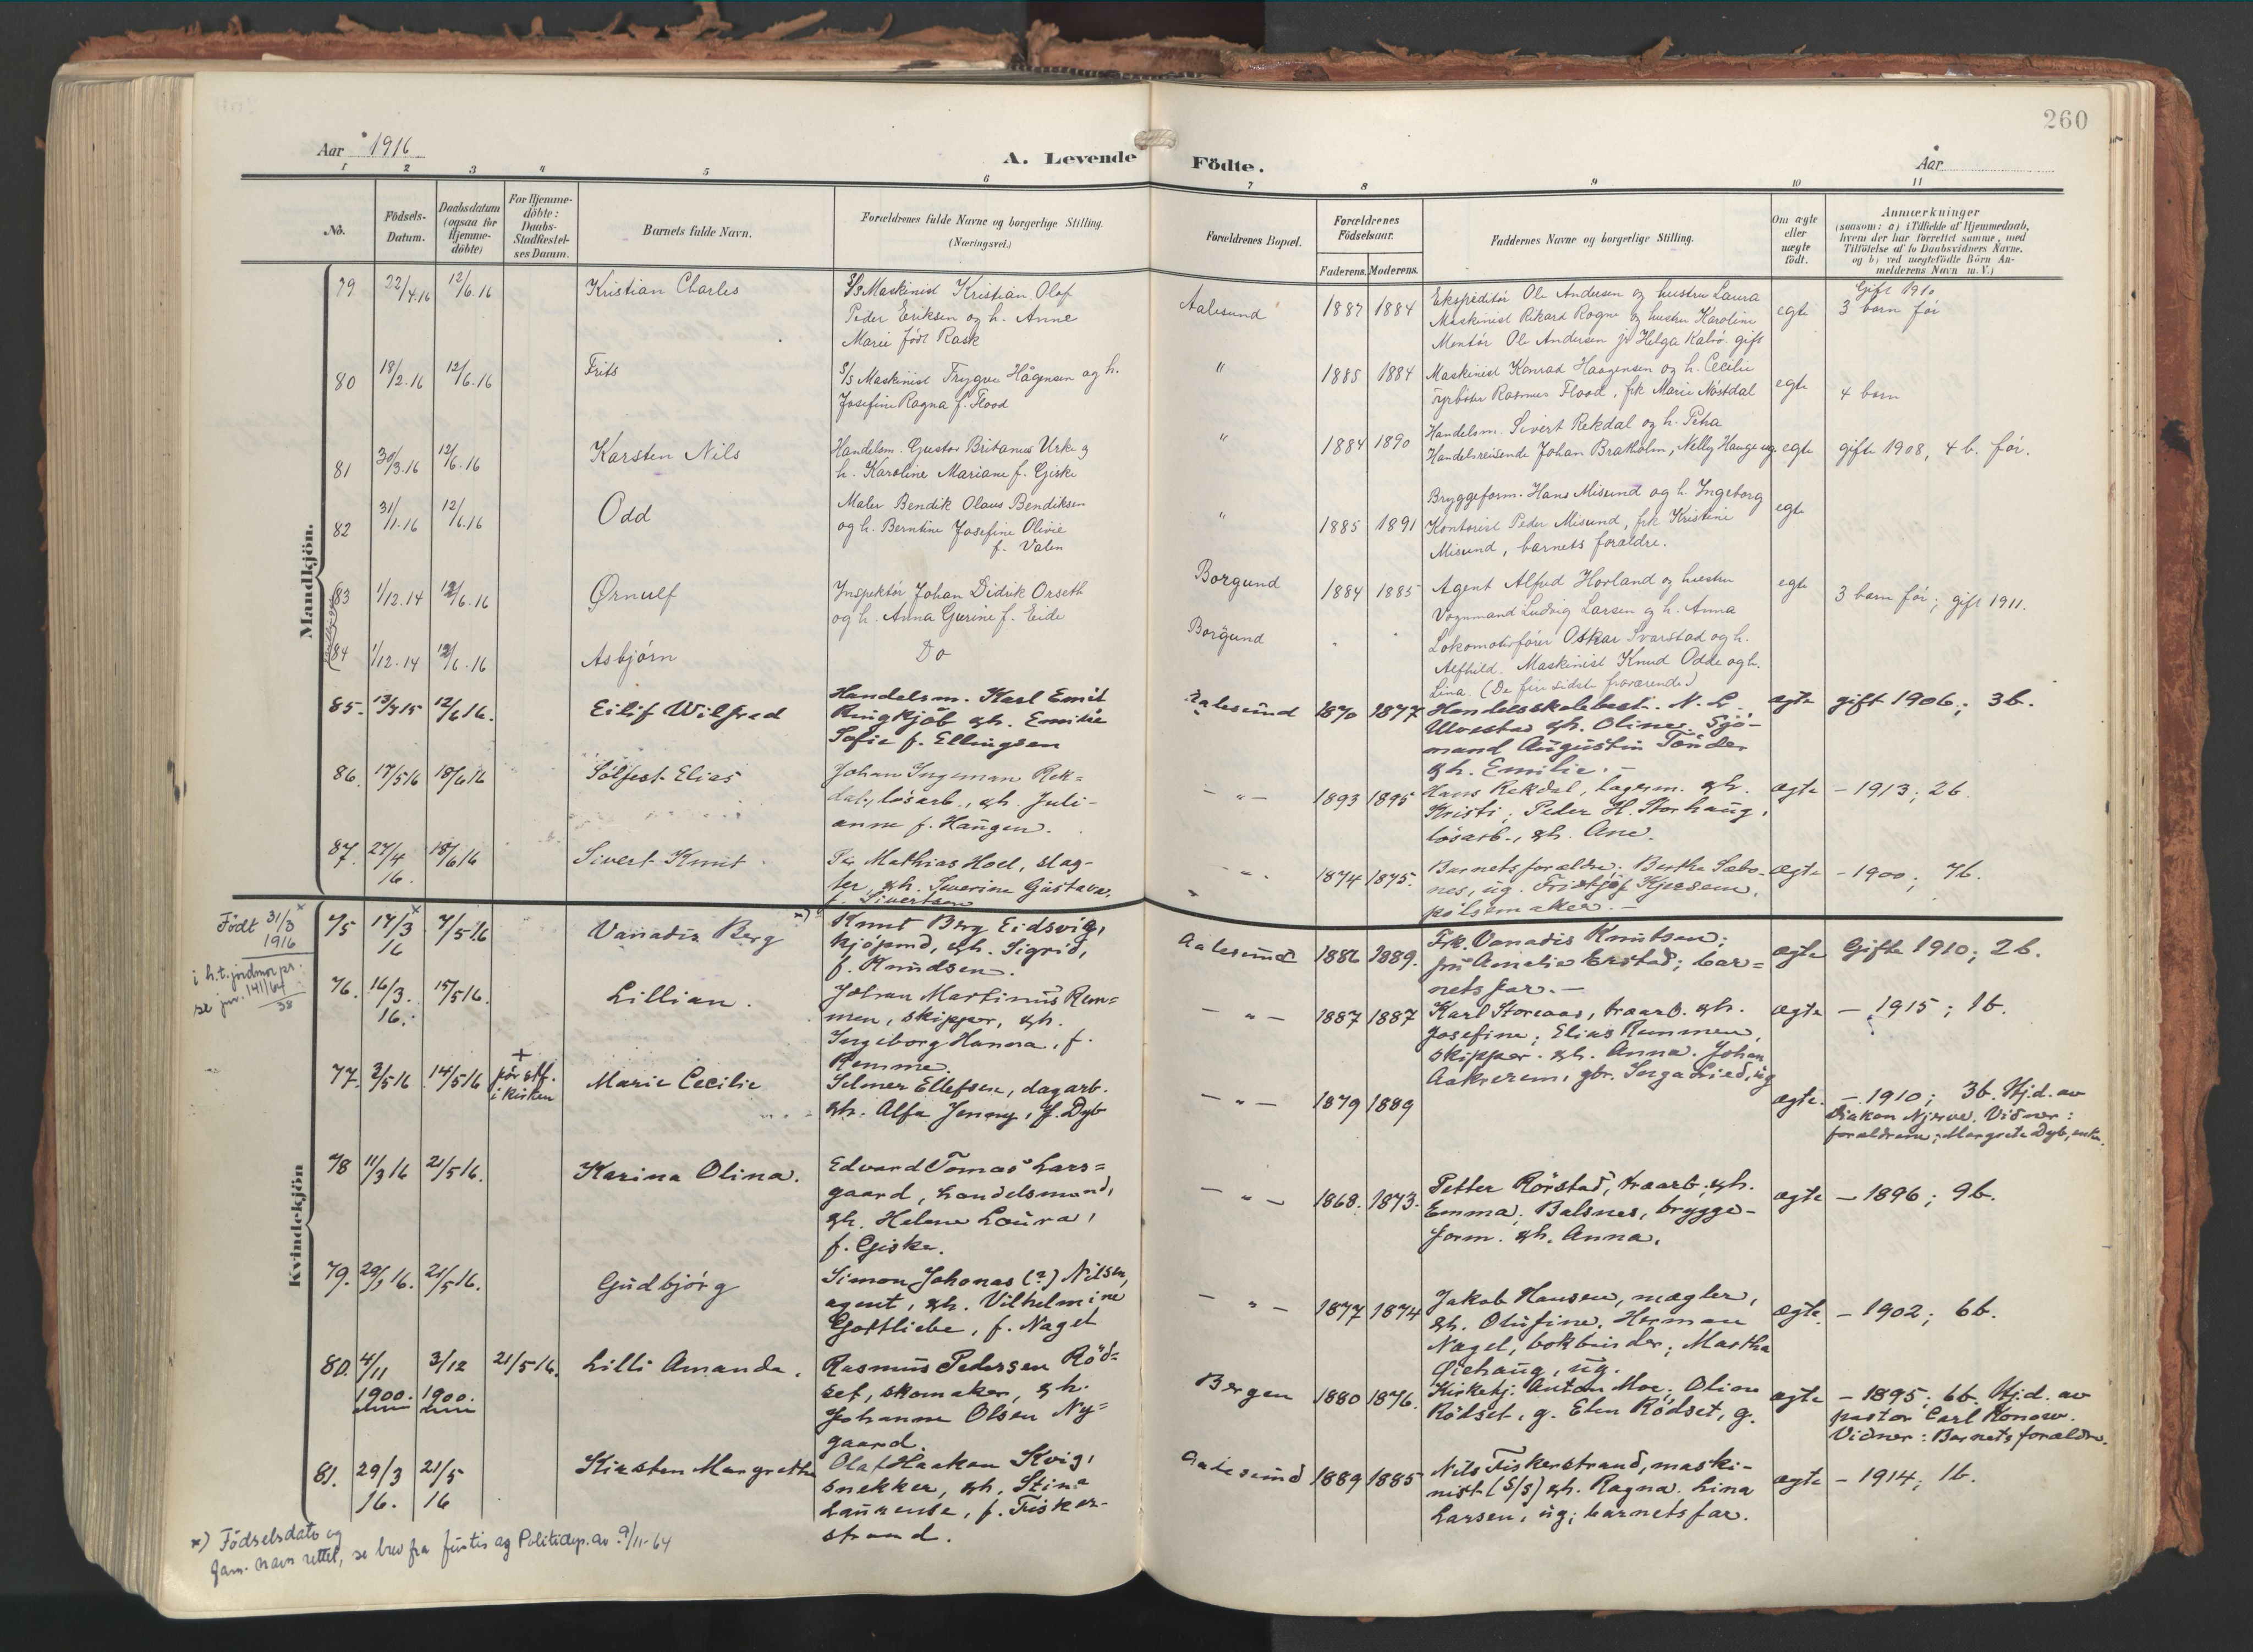 260
Aar 1916
A. Levende Födte.
Aar
1 2 3 4 5 6 7 8 9 10 11
No.
Födsels-
Datum.
Daabsdatum
(ogsaa for
Hjemme-
döbte)
For Hjemme-
döbte:
Daabs-
Stadfæstel-
ses Datum.
Barnets fulde Navn.
Forældrenes fulde Navne og borgerlige Stilling.
(Næringsvei.)
Forældrenes Bopæl.
Forældrenes
Födselsaar.
Faderens. Moderens.
Faddernes Navne og borgerlige Stilling.
Om ægte
eller
uægte
födt.
Anmærkninger
(saasom: a) i Tilfælde af Hjemmedaab,
hvem der har forrettet samme, med
Tilföielse af to Daabsvidners Navne.
og b) ved uægtefödte Börn An-
melderens Navn m.V.)
Mandkjön.
79 22/4.16 12/6.16 Kristian Charles
S/S Maskinist Kristian Olaf
Peder Eriksen og h. Anne
Marie født Rask
Aalesund 1887 1884
Ekspeditør Ole Andersen og hustru Laura
Maskinist Rikard Rogne og hustru Karoline
Montør Ole Andersen jr Helga Kalvø gift
egte
Gift 1910
3 barn før
80 18/2.16 12/6.16 Frits
S/S Maskinist Trygve Hågensen og h.
Josefine Ragna f. Flood
" 1885 1884
Maskinist Konrad Haagensen og h. Cecilie
Fyrbøter Rasmus Flood, frk Marie Nøstdal
egte 4 barn
81 30/3.16 12/6.16 Karsten Nils
Handelsm. Gustav Britanus Urke og
h. Karoline Mariane f. Giske
" 1884 1890
Handelsm. Sivert Rekdal og h. Petra
Handelsreisende Johan Bratholm, Nelly Hauge ug.
egte gifte 1908, 4 b. før.
82 31/11.16 12/6.16 Odd
Maler Bendik Olaus Bendiksen
og h. Berntine Josefine Olivie
f. Valen
" 1885 1891
Bryggeform. Hans Misund og h. Ingeborg
Kontorist Peder Misund, frk Kristine
Misund, barnets forældre.
egte
83 1/12.14 12/6.16 Ørnulf
Inspektør Johan Didrik Orseth
og h. Anna Gurine f. Eide
Borgund 1884 1885
Agent Alfred Hovland og hustru
Vognmand Ludvig Larsen og h. Anna
egte 3 barn før; gift 1911.
84 1/12.14 12/6.16 Asbjørn
Do
Borgund
Lokomotivfører Oskar Svarstad og h.
Alfhild. Maskinist Knud Odde og h.
Lina. (De fire sidste fraværende)
85. 13/3 15 12/6 16. Eilif Wilfred
Handelsm. Karl Emil
Ringkjøb gh. Emilie
Sofie f. Ellingsen
Aalesund 1870 1877
Handelsskolebest. N. L.
Ulvestad gh. Oline. Sjö-
mand Augustin Tönder
gh. Emilie. -
ægte gift 1906; 3b.
86. 17/5 16 18/6 16 Sölfest Elias
Johan Ingeman Rek=
dal, lösarb., gh. Juli-
anne f. Haugen.
- " - 1893 1895
Hans Rekdal, lagerm. gh.
Kristi; Peder H. Storhaug,
lösarb., gh. Ane.
ægte - 1913; 2b.
87. 27/4 16. 18/6 16 Sivert Knut
Per Mathias Hoel, slag-
ter, gh. Severine Gustava,
f. Sivertsen
- " - 1874 1875.
Barnets forældre; Bertha Sæbö-
nes, ug. Fridtjof Kjersem,
pölsemaker. -
ægte - 1900; 7b.
Kvindekjön
Født 31/3 x
1916
i h.t. jordmor pr:
se jnr. 141/64
38
75 17/3 x 16 7/5 16 Vanadis Berg
x) Knut Berg Eidsvig,
kjöpmd, gh. Sigrid,
f. Knudsen.
Aalesund 1886 1889.
Frk. Vanadis Knutsen;
fru Amalie Erstad; bar=
nets far. -
ægte Gifte 1910; 2b.
76. 16/3. 16. 15/5 16. Lillian.
Johan Martinus Rem=
men, skipper, gh.
Ingeborg Hanna, f.
Remme.
- " - 1887 1887
Karl Storeaas, træarb. gh.
Josefine; Elias Remmen,
skipper. gh. Anna. Johan
Aakrerem, gbr. Inga Lied, ug
ægte - 1915; 1b.
77. 2/5 16 14/5 16 + før stf. i kirken Marie Cecilie
Selmer Ellefsen, dagarb.
gh. Alfa Jenny, f. Dyb
- " - 1879 1889
ægte. - 1910; 3b. Hj.d. av
diakon Njerve. Vidner:
forældrene; Margrete Dyb, enke.
78 11/3 16 21/5 16. Karina Olina.
Edvard Tomas Lars=
gaard, handelsmand,
gh. Helene Loura,
f. Giske.
- " - 1868. 1873.
Petter Rörstad, træarb. gh.
Emma; Balsnes, brygge-
form. gh. Anna.
ægte - 1896; 9b.
79. 29/3 16. 21/5 16. Gudbjörg
Simon Johanas (?) Nilsen,
agent, gh. Vilhelmine
Gottliebe, f. Nagel
- " - 1877 1874
Jakob Hansen, mægler,
gh. Olufine. Herman
Nagel, bokbinder; Martha
Öiehaug, ug.
ægte. - 1902; 6b.
80. 4/11 1900. 3/12 1900. 21/5 16. Lilli Amanda.
Rasmus Pedersen Röd=
set, skomaker, gh.
Johanne Olsen Ny=
gaard.
Bergen 1880 1876.
Kirketj. Anton Moe; Oline
Rödset, g. Elen Rödset, g.
ægte - 1895; 6b. Hj.d. av
pastor Carl Konow.
Vidner: Barnets forældre.
81. 29/3 16. 21/5 16 Kirsten Margrethe
Olaf Haakon Kvig,
snekker, gh. Stina
Laurense, f. Fisker-
strand.
Aalesund 1889 1885
Nils Fiskerstrand, maski-
nist (S/S) gh. Ragna. Lina
Larsen, ug; barnets far.
ægte - 1914; 1b.
x) Födselsdato og
fam. navn rettet, se brev fra Justis og Politidep. av 9/11-64